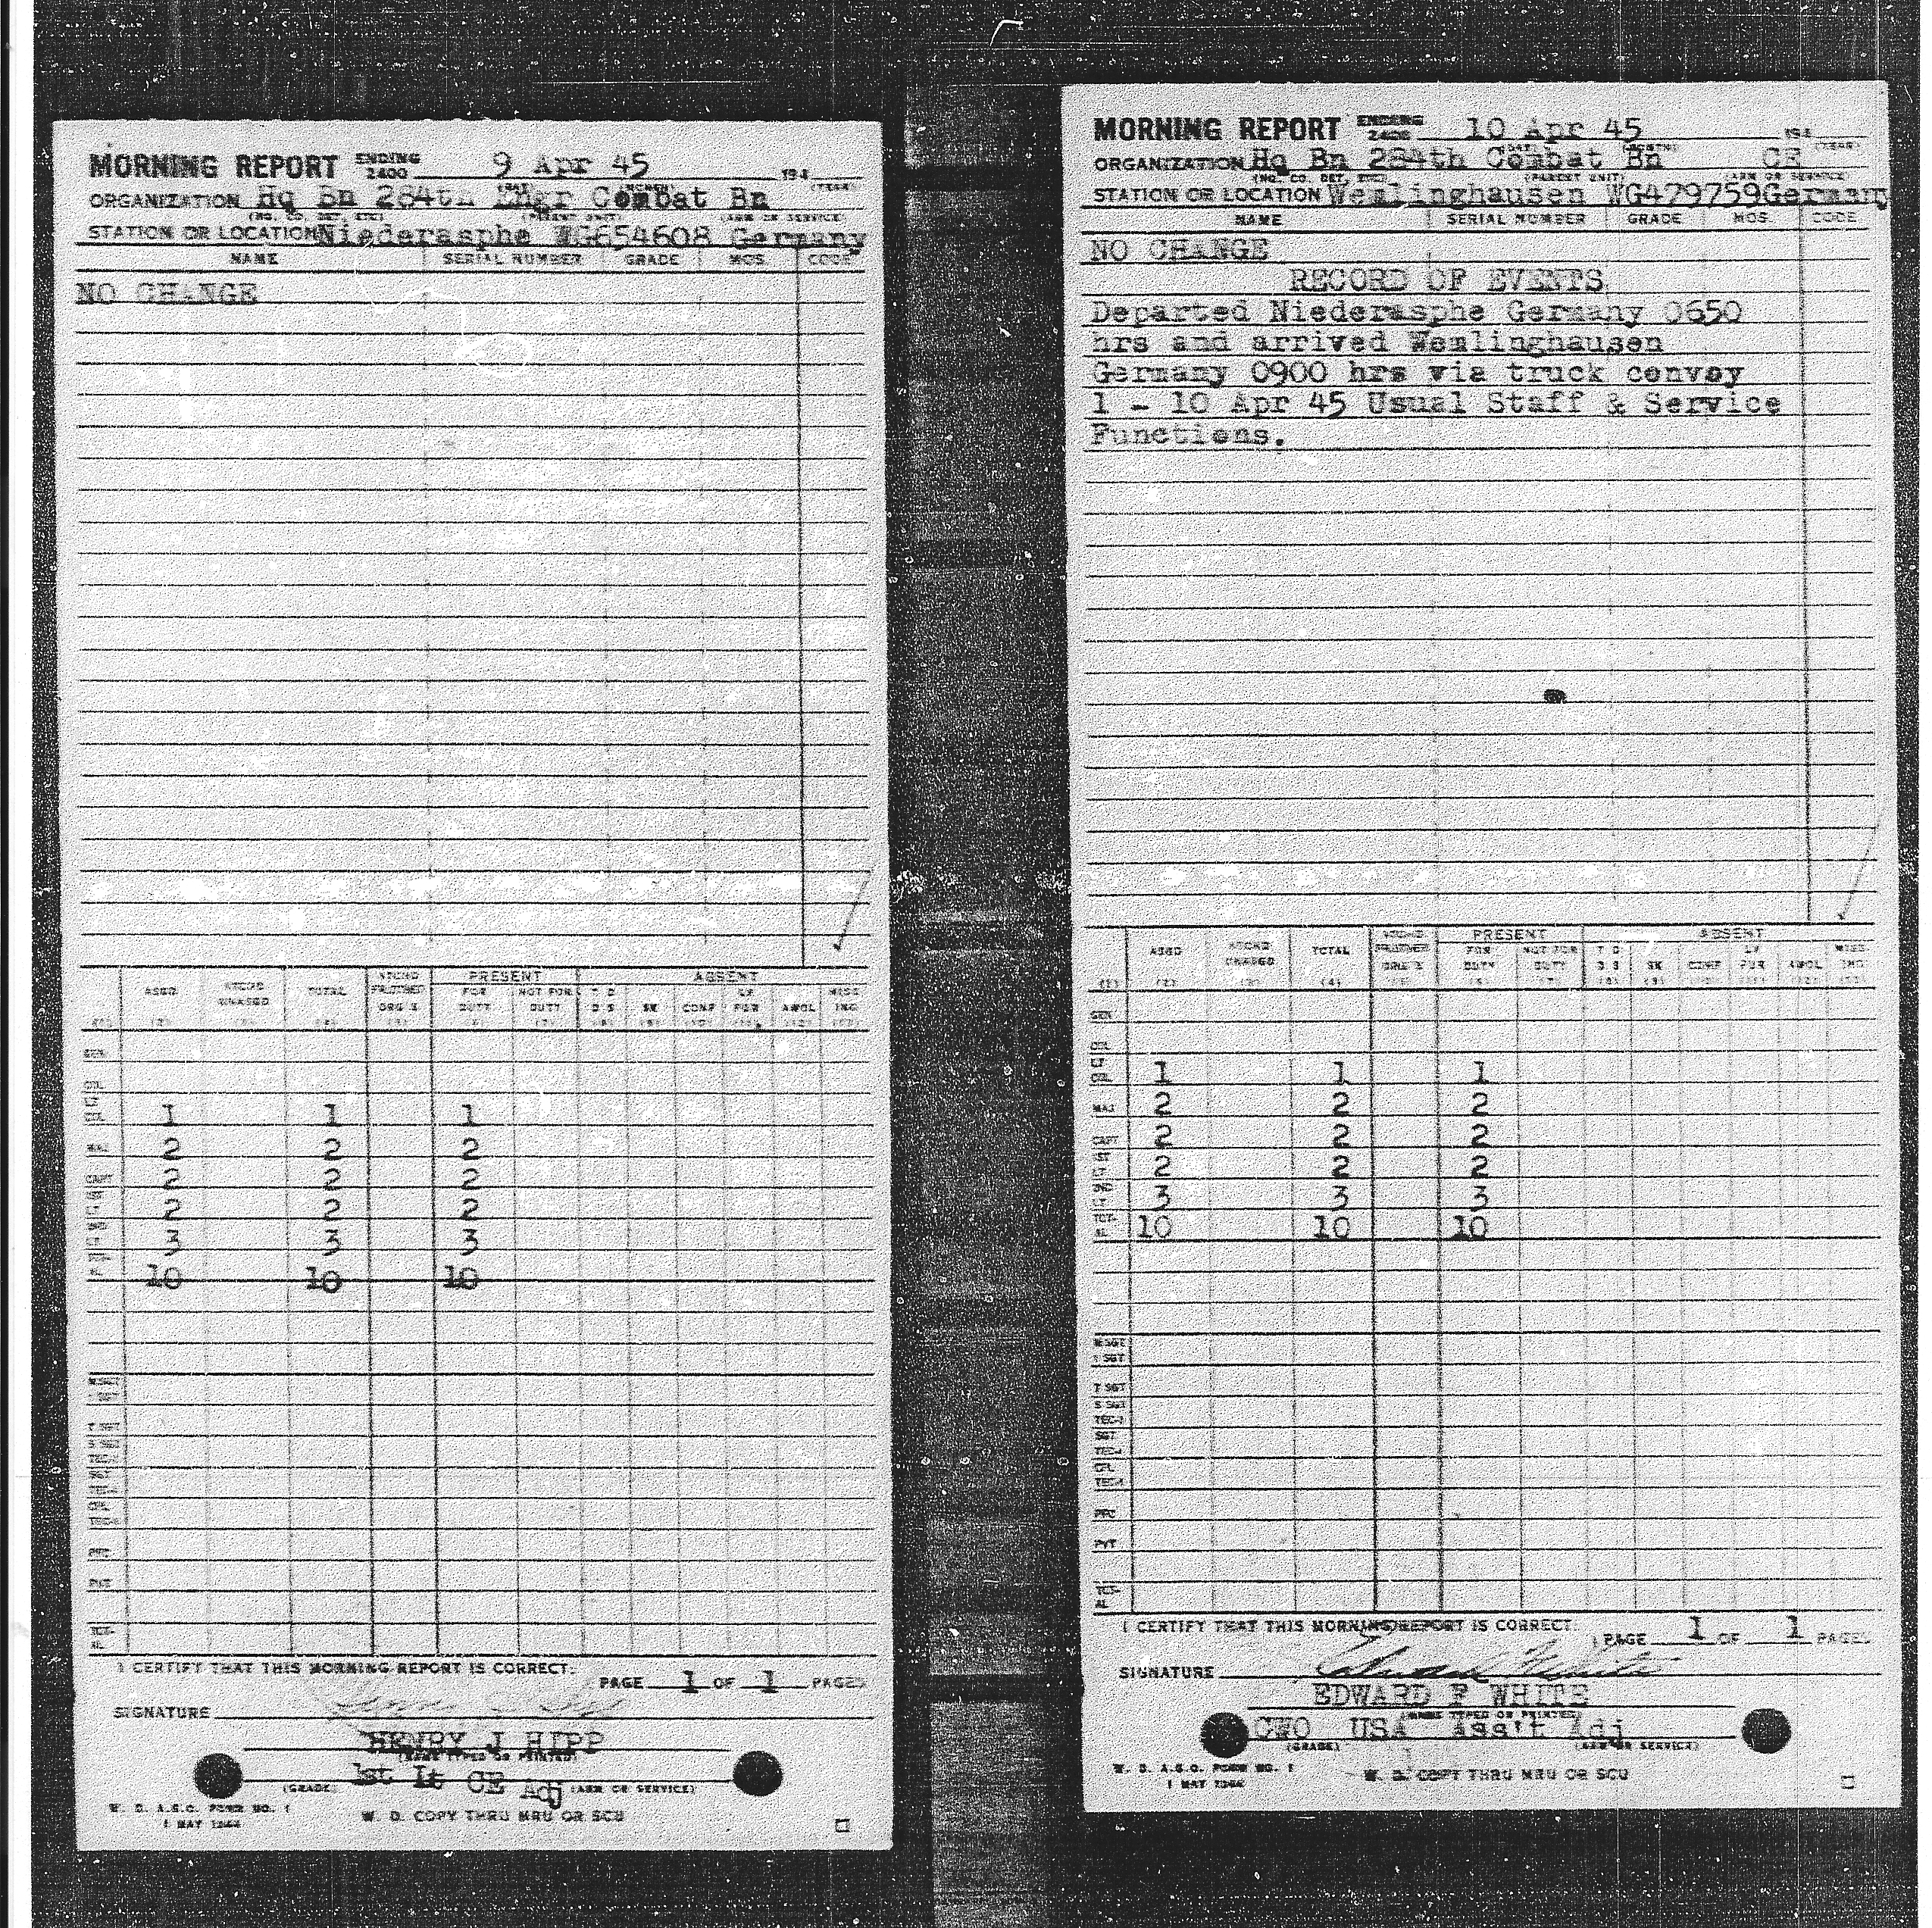 MORNING REPORT ENDING 2400 9 Apr 45 194
(DAY) (MONTH) (YEAR)
ORGANIZATION Hq Bn 284th Engr Combat Bn
(HQ. CO. DET. ETC) (PARENT UNIT) (ARM OR SERVICE)
STATION OR LOCATION Niederasphe WG654608 Germany
NAME SERIAL NUMBER GRADE MOS CODE
NO CHANGE
ATCHD PRESENT ABSENT
ASGD ATCHD UNASGD TOTAL FR OTHER ORG'S FOR DUTY NOT FOR DUTY T D D S SK CONF LV FUR AWOL MISS ING
GEN
COL
LT COL 1 1 1
MAJ 2 2 2
CAPT 2 2 2
2 2 2
3 3 3
10 10 10
PVT
I CERTIFY THAT THIS MORNING REPORT IS CORRECT.
PAGE 1 OF 1 PAGES
SIGNATURE
HENRY J HIPP
(NAME TYPED OR PRINTED)
1st Lt CE Adj
(GRADE) (ARM OR SERVICE)
W. D. A.G.O. FORM NO. 1
1 MAY 1944
W. D. COPY THRU MRU OR SCU
MORNING REPORT ENDING 2400 10 Apr 45 194
(DAY) (MONTH) (YEAR)
ORGANIZATION Hq Bn 284th Combat Bn CE
(HQ. CO. DET. ETC) (PARENT UNIT) (ARM OR SERVICE)
STATION OR LOCATION Wemlinghausen WG479759 Germany
NAME SERIAL NUMBER GRADE MOS CODE
NO CHANGE
RECORD OF EVENTS
Departed Niederasphe Germany 0650
hrs and arrived Wemlinghausen
Germany 0900 hrs via truck convoy
1 - 10 Apr 45 Usual Staff & Service
Functions.
ATCHD PRESENT ABSENT
ASGD ATCHD UNASGD TOTAL FR OTHER ORG'S FOR DUTY NOT FOR DUTY T D D S SK CONF LV FUR AWOL MISS ING
(1) (2) (3) (4) (5) (6) (7) (8) (9)
GEN
COL
LT COL 1 1 1
MAJ 2 2 2
CAPT 2 2 2
1ST LT 2 2 2
2ND LT 3 3 3
TOT AL 10 10 10
M SGT
1 SGT
T SGT
S SGT
TEC-3
SGT
TEC-4
CPL
TEC-5
PFC
PVT
TOT AL
I CERTIFY THAT THIS MORNING REPORT IS CORRECT.
PAGE 1 OF 1 PAGES
SIGNATURE Edward F White
EDWARD F WHITE
(NAME TYPED OR PRINTED)
CWO USA Ass't Adj
(GRADE) (ARM OR SERVICE)
W. D. A.G.O. FORM NO. 1
1 MAY 1944
W. D. COPY THRU MRU OR SCU